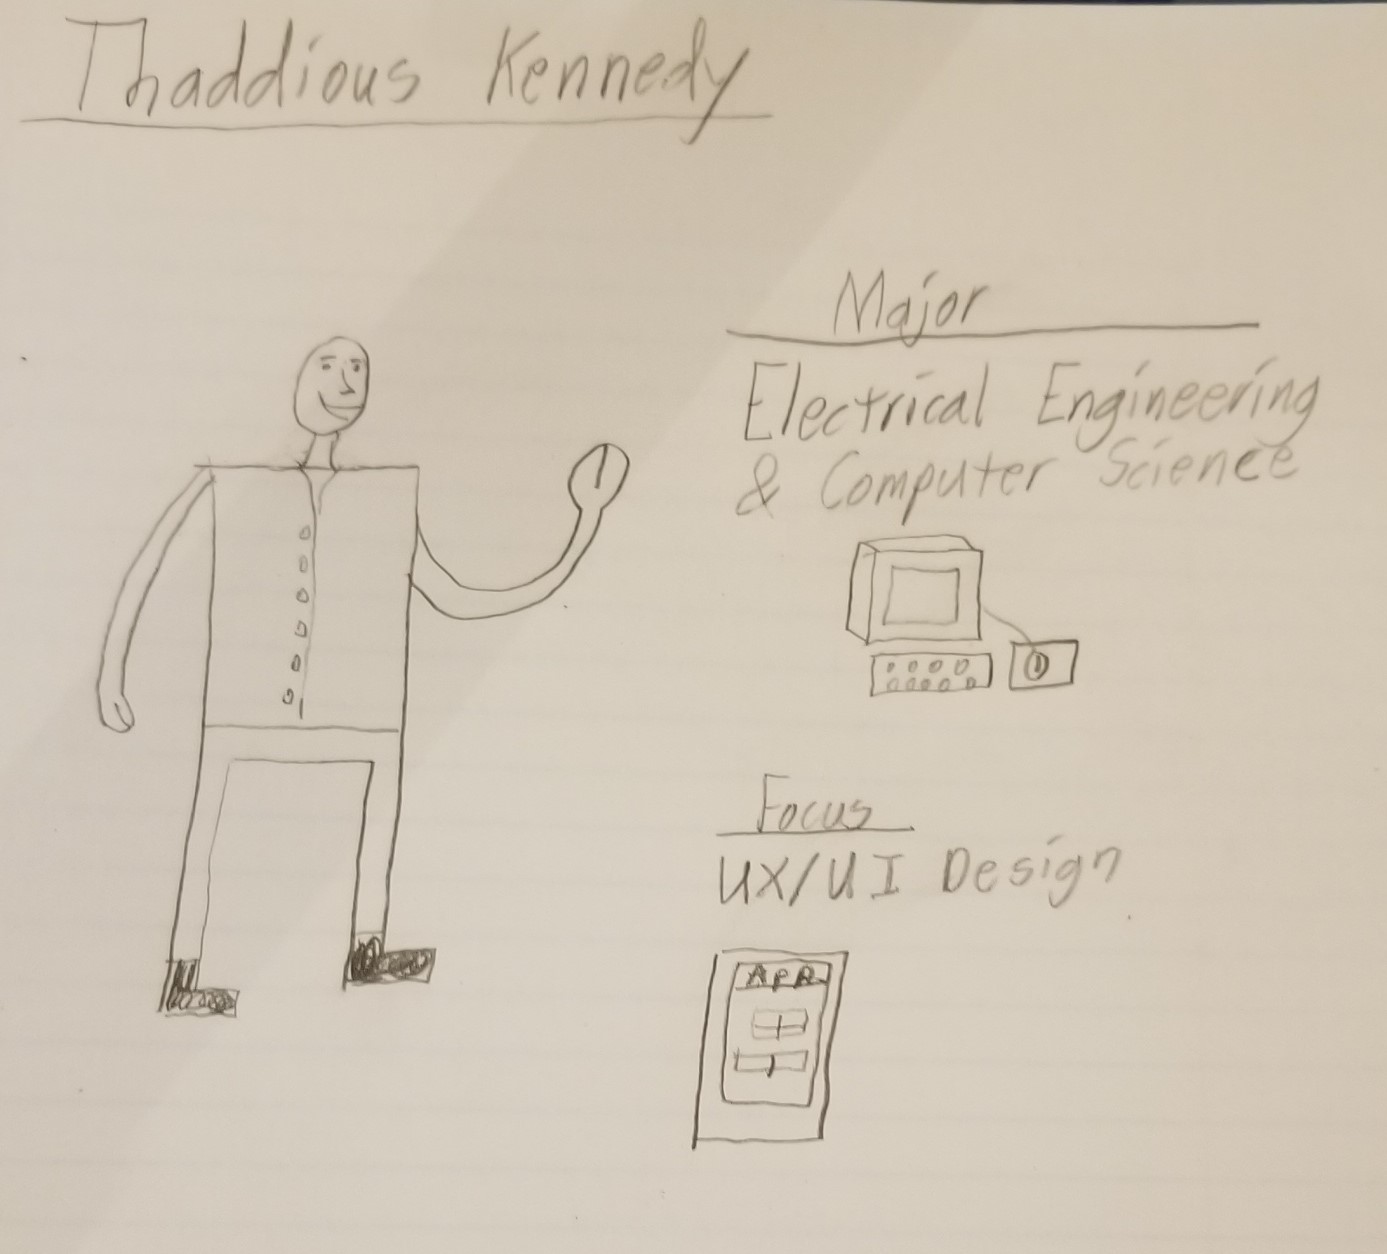 Thaddious Kennedy
Major
Electrical Engineering
& Computer Science
Focus
UX/UI Design
APP